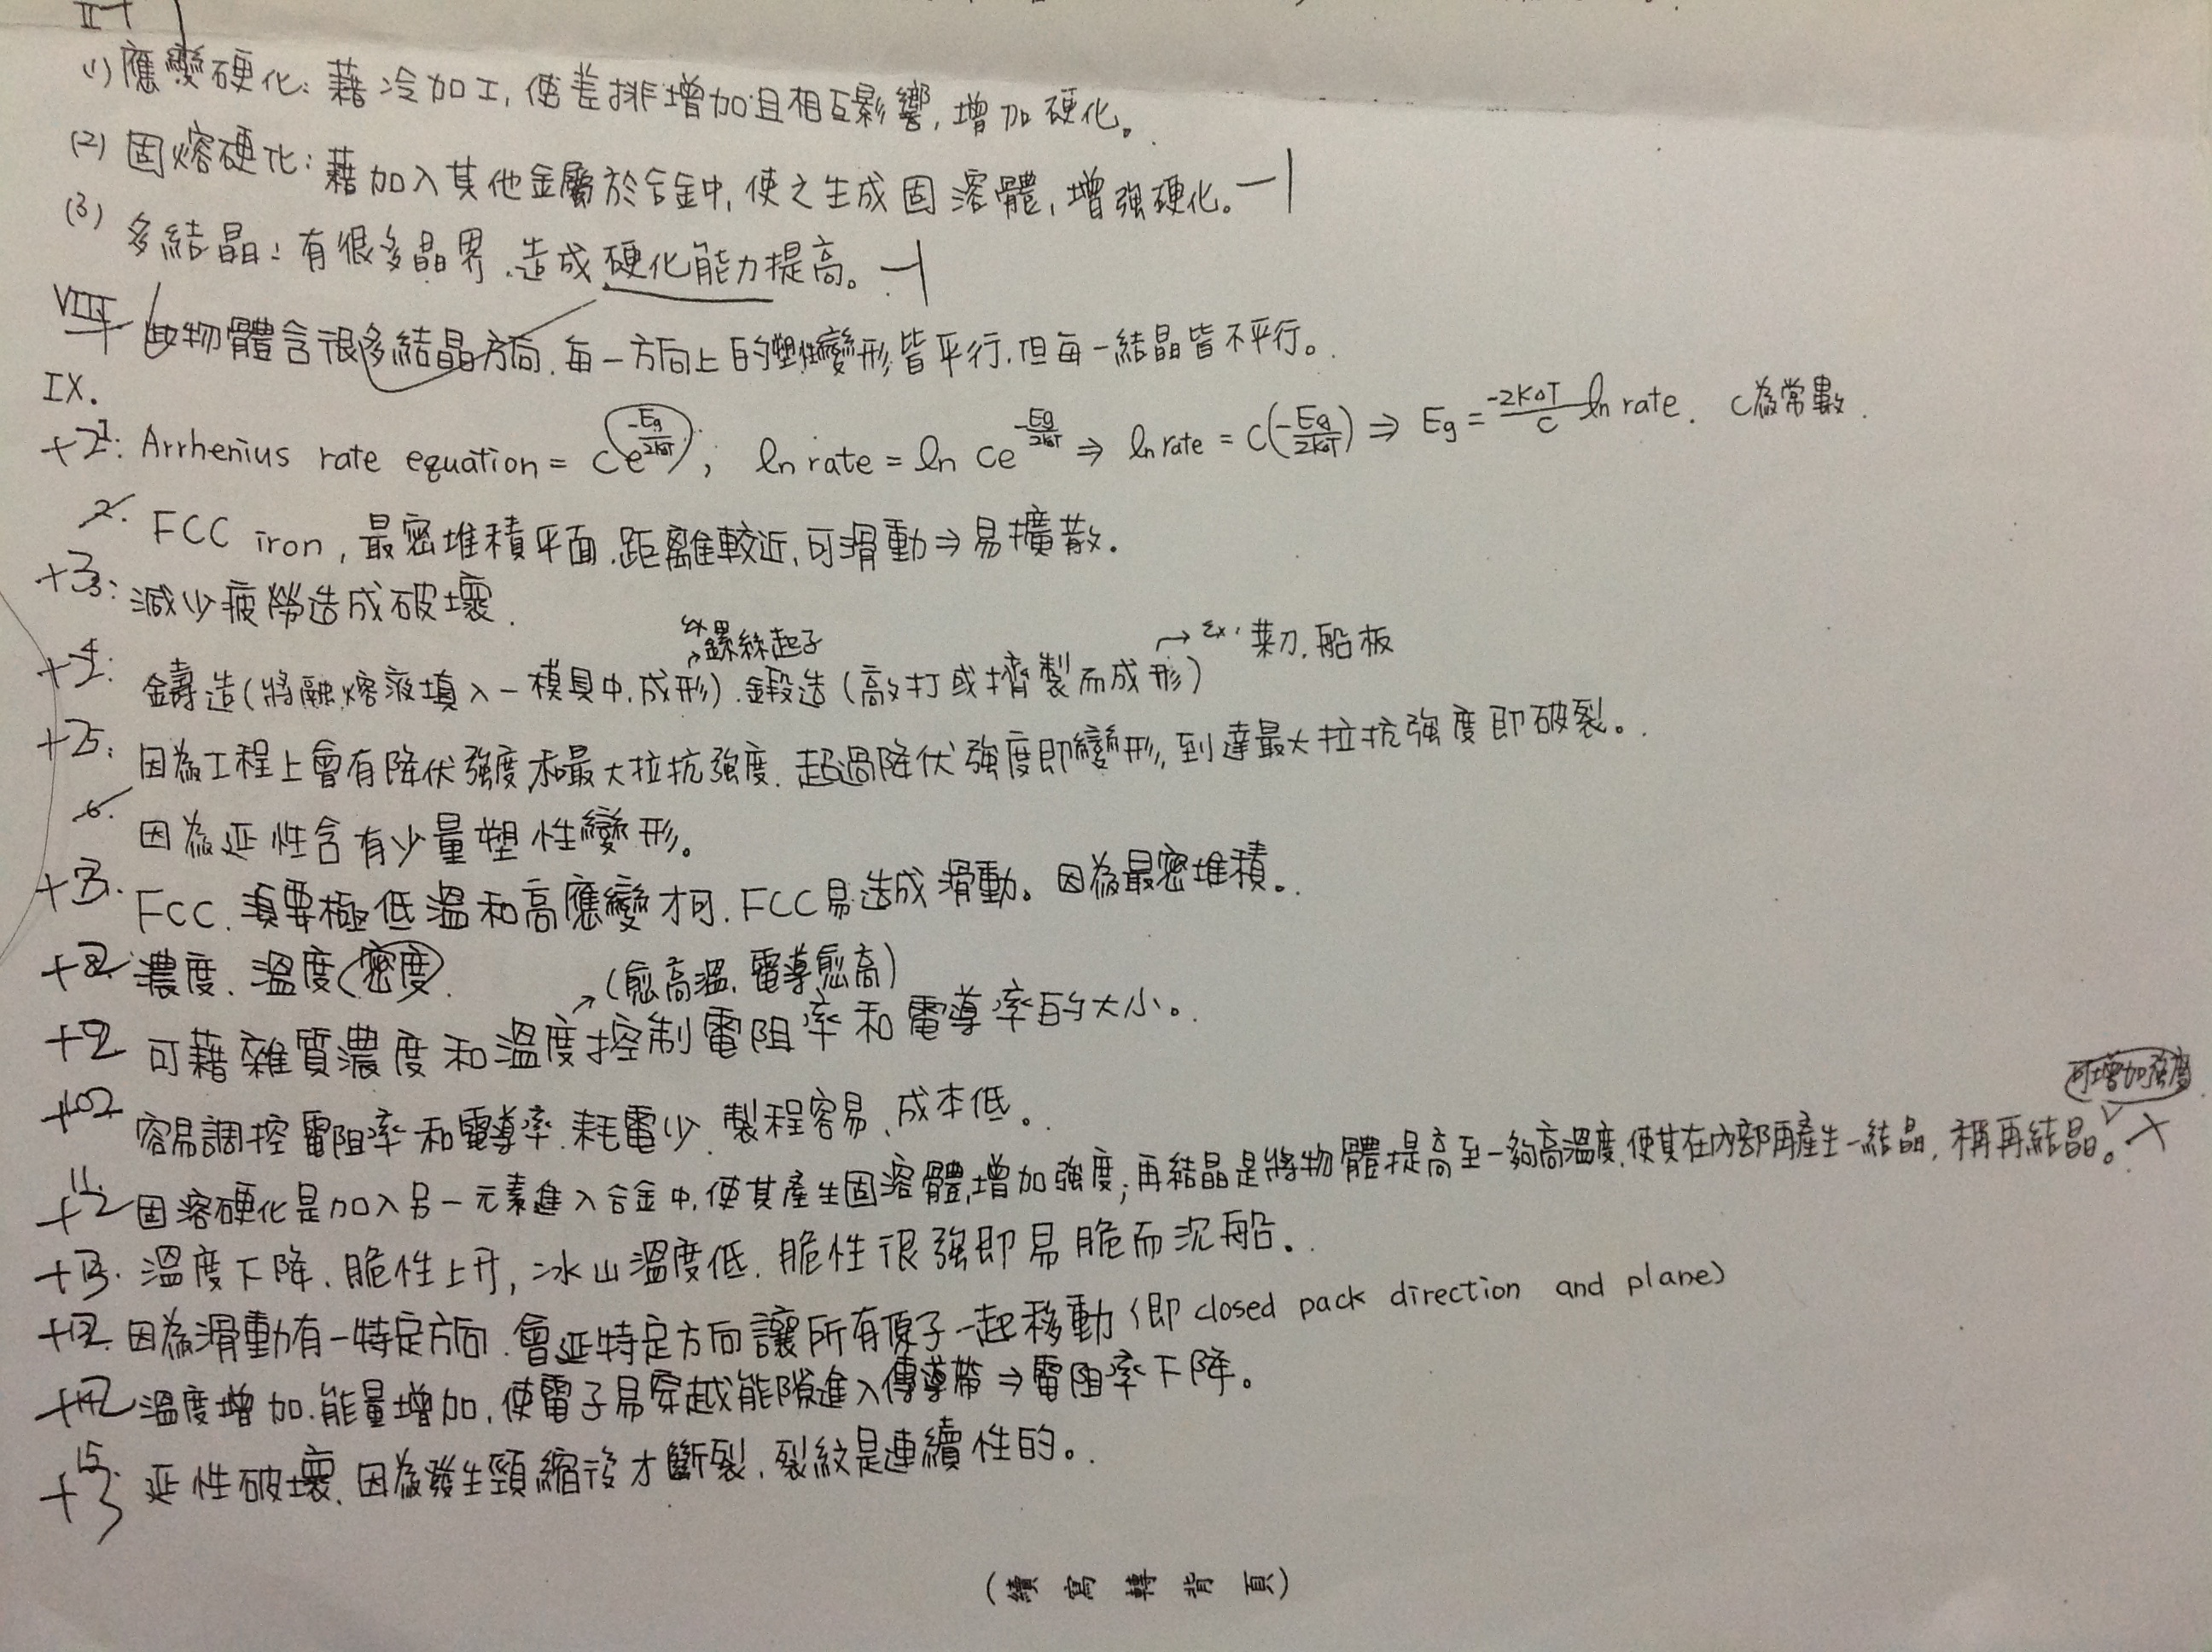 II-1
(1) 應變硬化: 藉冷加工, 使差排增加且相互影響, 增加硬化。
(2) 固熔硬化: 藉加入其他金屬於合金中, 使之生成固溶體, 增強硬化。 -1
(3) 多結晶: 有很多晶界, 造成硬化能力提高。 -1
VIII 物體含很多結晶方向, 每一方向上的塑性變形皆平行, 但每一結晶皆不平行。
IX.
+2 1: Arrhenius rate equation = Ce^(-Eg/2KΔT); ln rate = ln Ce^(-Eg/2KΔT) ⇒ ln rate = C(-Eg/2KΔT) ⇒ Eg = -2KΔT/C ln rate. C為常數.
2. FCC iron, 最密堆積平面, 距離較近, 可滑動 ⇒ 易擴散.
+3 3: 減少疲勞造成破壞.
螺絲起子
ex. 菜刀, 船板
+4: 鑄造(將融熔液填入一模具中, 成形). 鍛造(敲打或擠製而成形)
+2 5: 因為工程上會有降伏強度和最大拉抗強度. 超過降伏強度即變形, 到達最大拉抗強度即破裂。
6. 因為延性含有少量塑性變形。
+3. FCC. 須要極低溫和高應變才可. FCC易造成滑動。因為最密堆積。
+2 8. 濃度、溫度(密度). (愈高溫, 電導愈高)
+2 9 可藉雜質濃度和溫度控制電阻率和電導率的大小。
+2 10 容易調控電阻率和電導率. 耗電少. 製程容易. 成本低.
可增加強度
+2 11 固溶硬化是加入另一元素進入合金中, 使其產生固溶體, 增加強度; 再結晶是將物體提高至一夠高溫度, 使其在內部再產生一結晶, 稱再結晶。 X
+3. 溫度下降. 脆性上升, 冰山溫度低. 脆性很強即易脆而沉船.
+2 因為滑動有一特定方向. 會延特定方向讓所有原子一起移動 (即 closed pack direction and plane)
+2 14 溫度增加. 能量增加, 使電子易穿越能隙進入傳導帶 ⇒ 電阻率下降。
+3 15. 延性破壞, 因為發生頸縮後才斷裂. 裂紋是連續性的。
(續寫轉背頁)